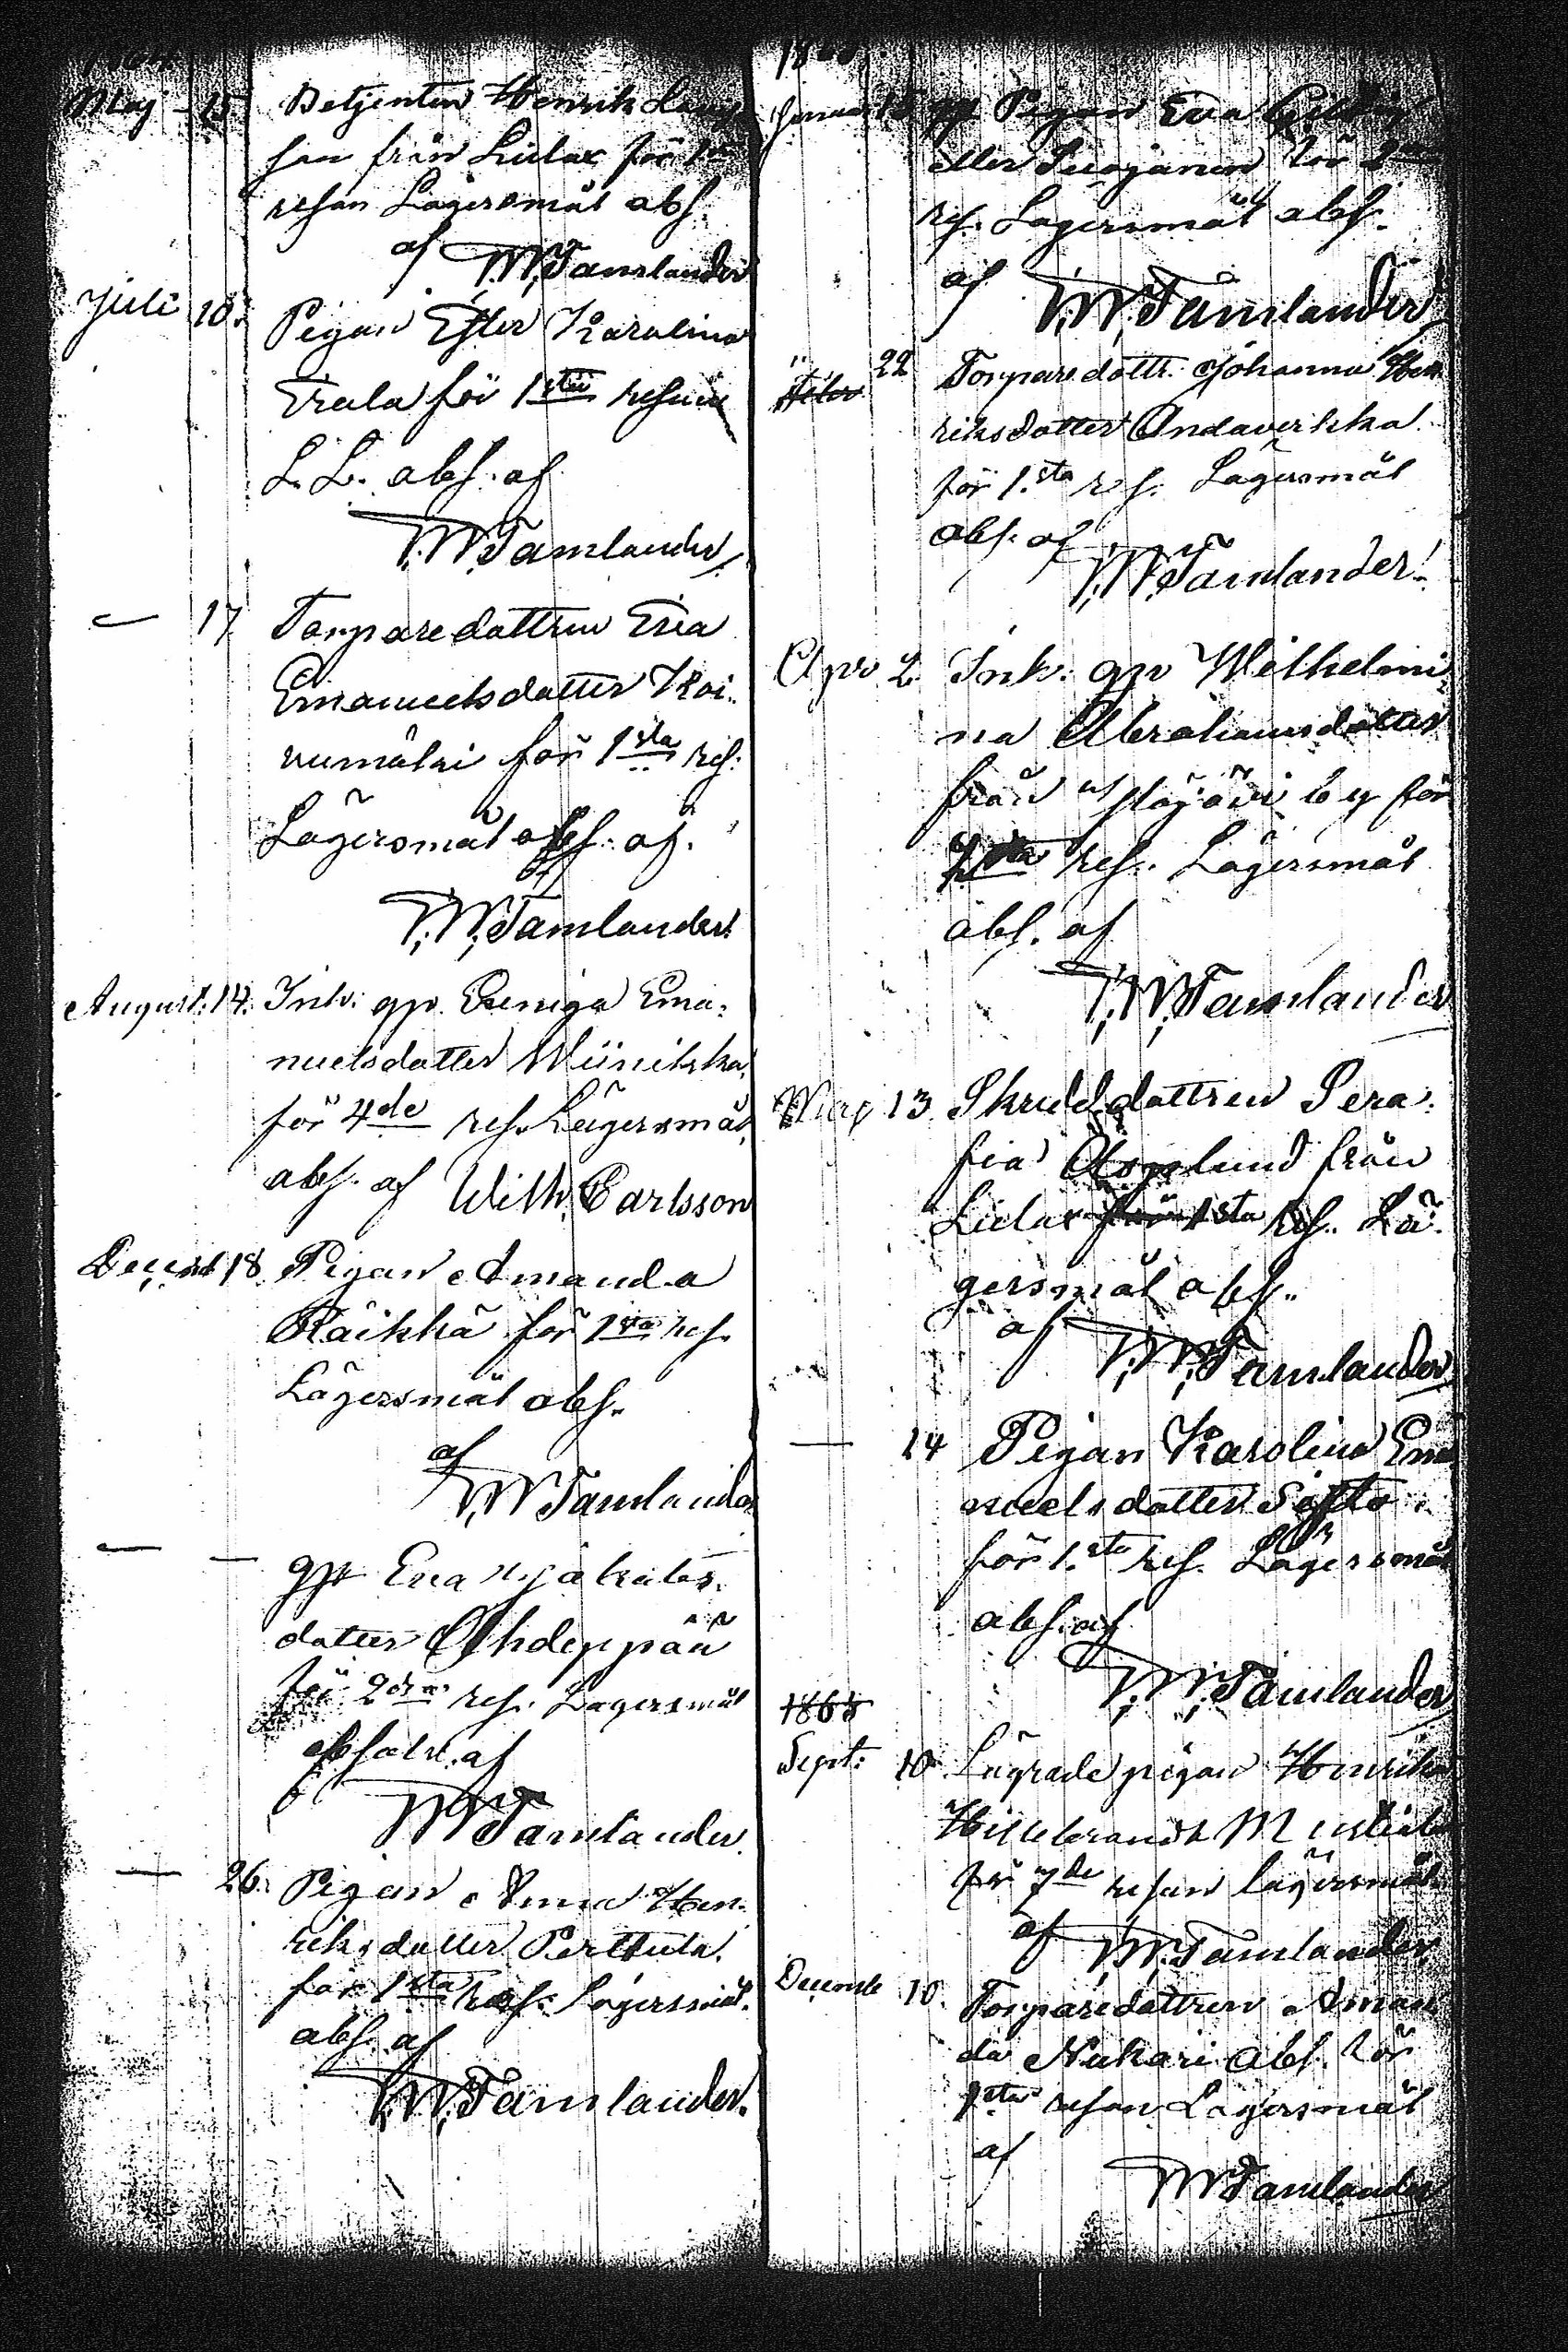 Maj 15 Betjenten Henrik
son från Lielax för 1
resan Lägersmål abs.
af W. Tamlander
Juli 10. Pigan Ester Karolina
Erala för 1sta resan
L. L. abs. af
W. Tamlander
— 17. Torparedottren Eva
Emanuelsdotter Koi-
vumäki för 1sta res.
Lägersmål abs. af.
W. Tamlander
August. 14. Inh: gp. Euniga Ema-
nuelsdotter Wiinikka
för 4de res. Lägersmål
abs. af Wilh. Carlsson
Decemb 18. Pigan Amanda
Räikkä för 1sta res.
Lägersmål abs.
af
W. Tamlander
— — gp Eva
dotter Ohdeppää
för 2dra res. Lägersmål
absolv. af
W. Tamlander
— 26. Pigan Anna Hen-
riksdotter Perttula.
för 1sta res. Lägersmål.
abs. af
W. Tamlander.
Januar 15 Pigan Eva
eller för
res. Lägersmål abs.
af W. Tamlander
" 22 Torparedottr. Johanna Hen
riksdotter Andaverkka
för 1.sta res. Lägersmål
abs. af
W. Tamlander
Apr. 2. Inh. gp Wilhelmi-
na Abrahamsdotter
från by för
res. Lägersmål
abs. af
W. Tamlander
Maj 13. Skredd.dottren Sera-
fia Asplund från
Lielax för 1sta res. Lä-
gersmål abs.
af W. Tamlander
— 14 Pigan Karolina Ema
nuelsdotter Sippo
för 1.sta res. Lägersmål
abs. af
W. Tamlander
1865
Sept: 10 Lägrade pigan Henrika
Hillebrandt
för 7de resan lägersmål
af W. Tamlander
Decemb 10. Torparedottren Aman
da Nukari abs. för
1sta resan Lägersmål
af
W. Tamlander